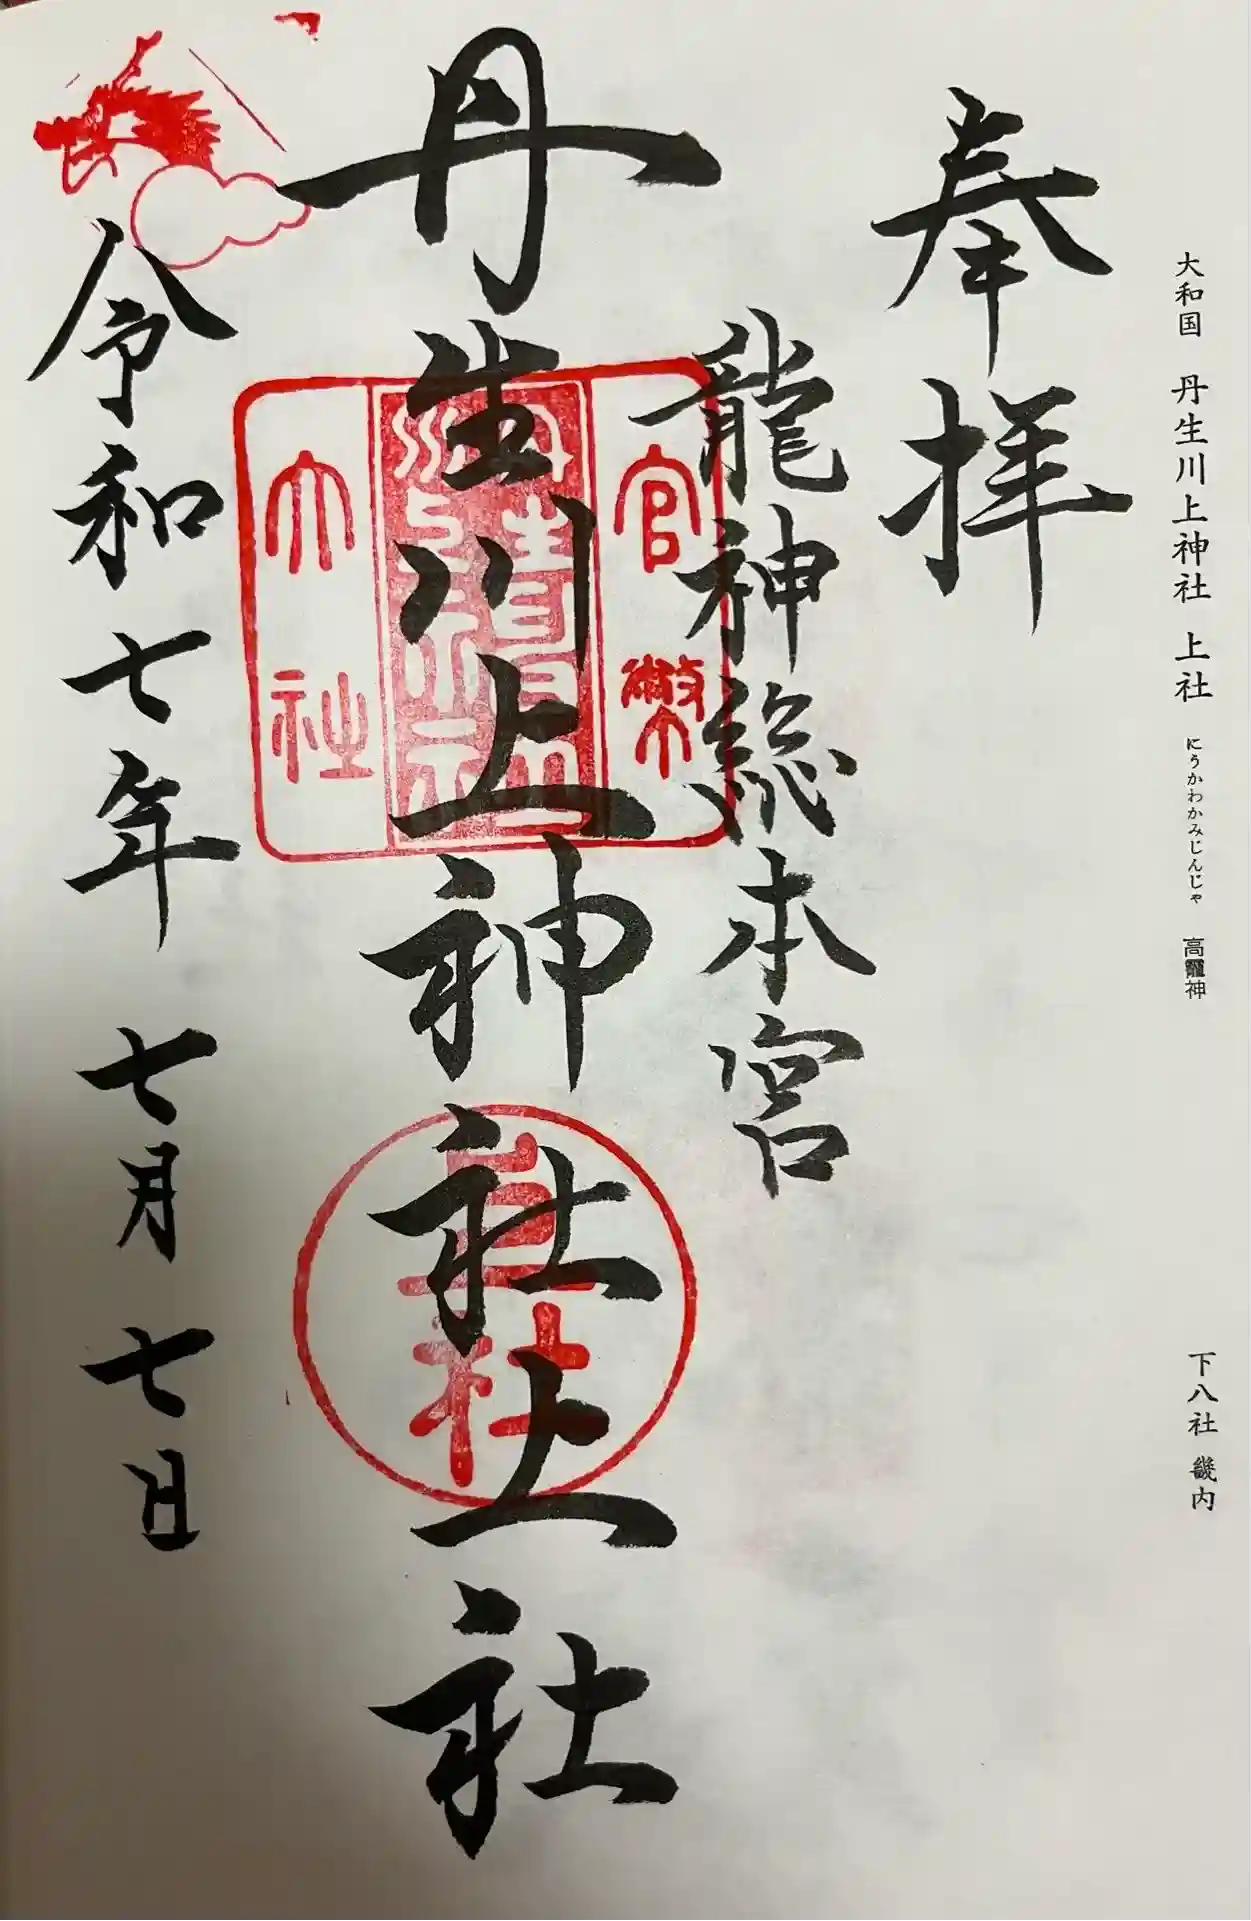 大和国 丹生川上神社 上社 にうかわかみじんじゃ 高龗神
下八社 畿内
奉拝
龍神総本宮
官幣
丹生川上神社上社
大社
上社
令和七年 七月七日